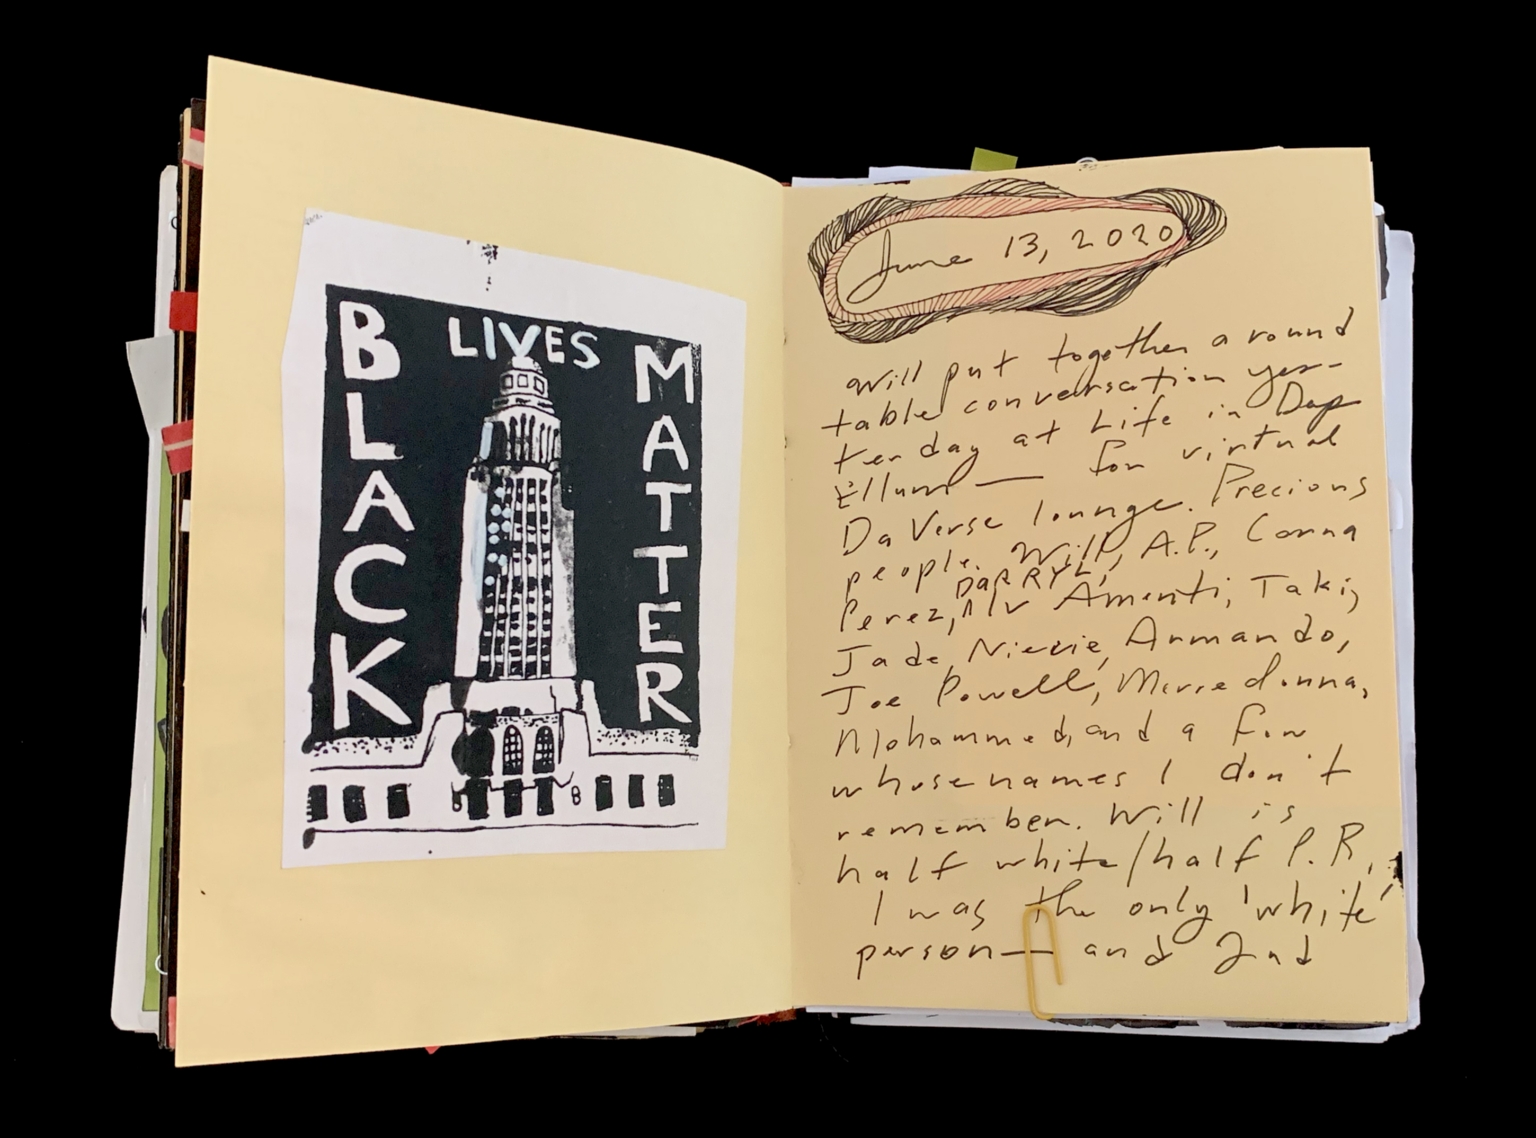 BLACK
LIVES
MATTER
June 13, 2020
Will put together a round
table conversation yes-
terday at Life in Deep
Ellum — for virtual
Da Verse lounge. Precious
people. Will, A.P., Corina
DARRYL,
Perez, Mr Amenti, Taki,
Jade, Nievie, Armando,
Joe Powell, Mariedonna,
Mohammed, and a few
whose names I don't
remember. Will is
half white/half P.R.,
I was the only 'white'
person — and 2nd